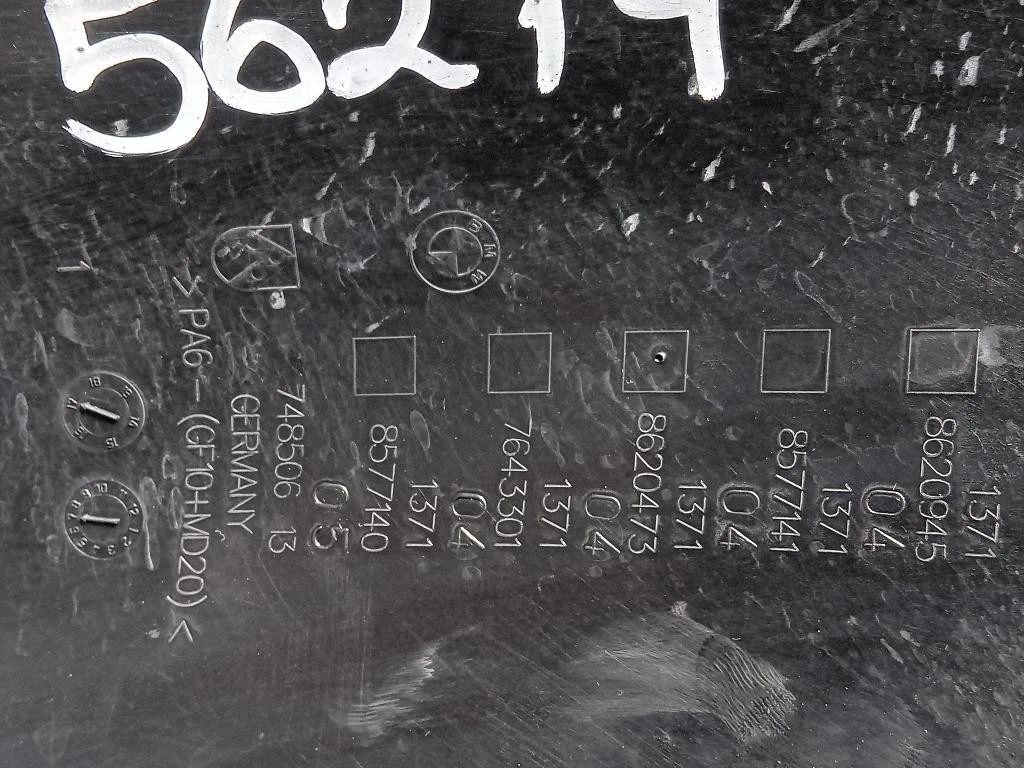 562
1371
8620945
04
1371
8577141
04
1371
8620473
04
1371
7643301
04
1371
8577140
05
BMW
748506 13
GERMANY
>PA6-(GF10+MD20)<
1